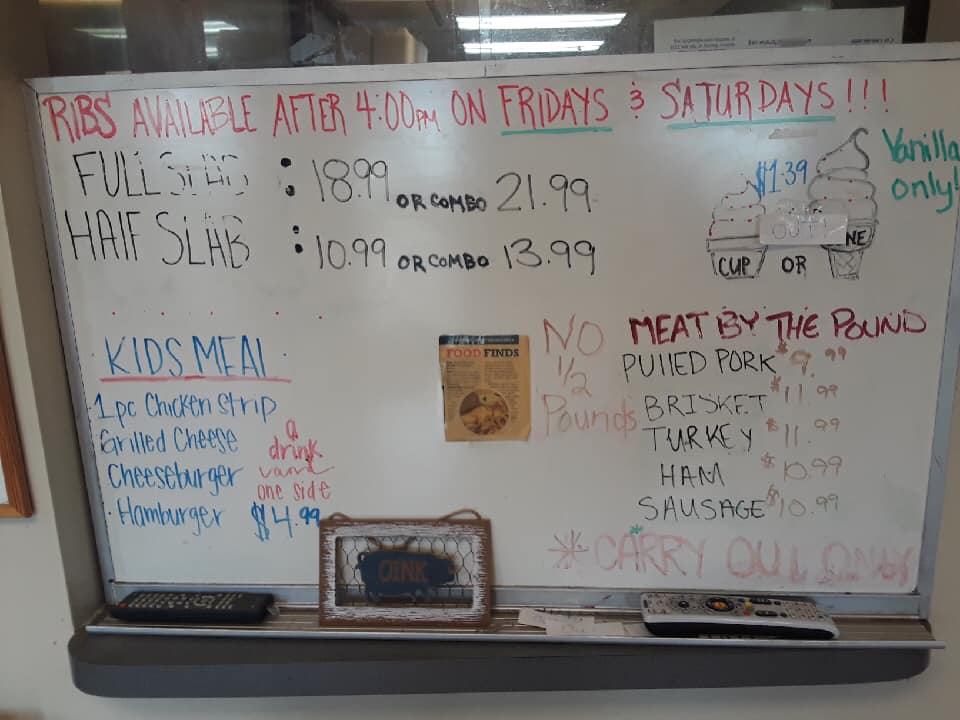 RIBS AVAILABLE AFTER 4:00PM ON FRIDAYS & SATURDAYS!!!
FULL SLAB : 18.99 OR COMBO 21.99
HALF SLAB : 10.99 OR COMBO 13.99
$1.39
Vanilla
only!
OUT!
CUP OR
NE
KIDS MEAL
1pc Chicken Strip
Grilled Cheese
Cheeseburger
Hamburger $4.99
a
drink
and
one side
FOOD FINDS
NO
1/2
Pounds
MEAT BY THE POUND
PULLED PORK $9.99
BRISKET $11.99
TURKEY $11.99
HAM $10.99
SAUSAGE $10.99
* CARRY OUT ONLY
OINK